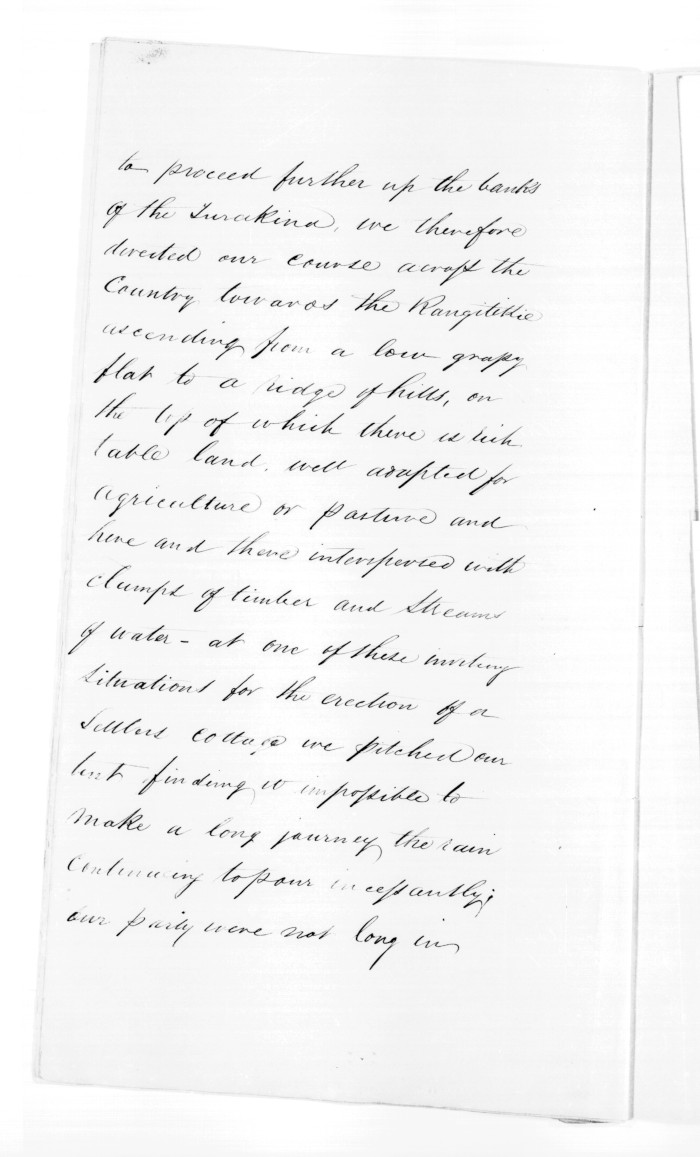 to proceed further up the banks
of the Turakina, we therefore
directed our course across the
Country towards the Rangitikie
ascending from a low grassy
flat to a ridge of hills, on
the top of which there is rich
table land, well adapted for
agriculture or pasture and
here and there interspersed with
clumps of timber and Streams
of water – at one of these inviting
situations for the erection of a
Settlers cottage we pitched our
tent, finding it impossible to
make a long journey, the rain
continuing to pour incessantly;
our party were not long in